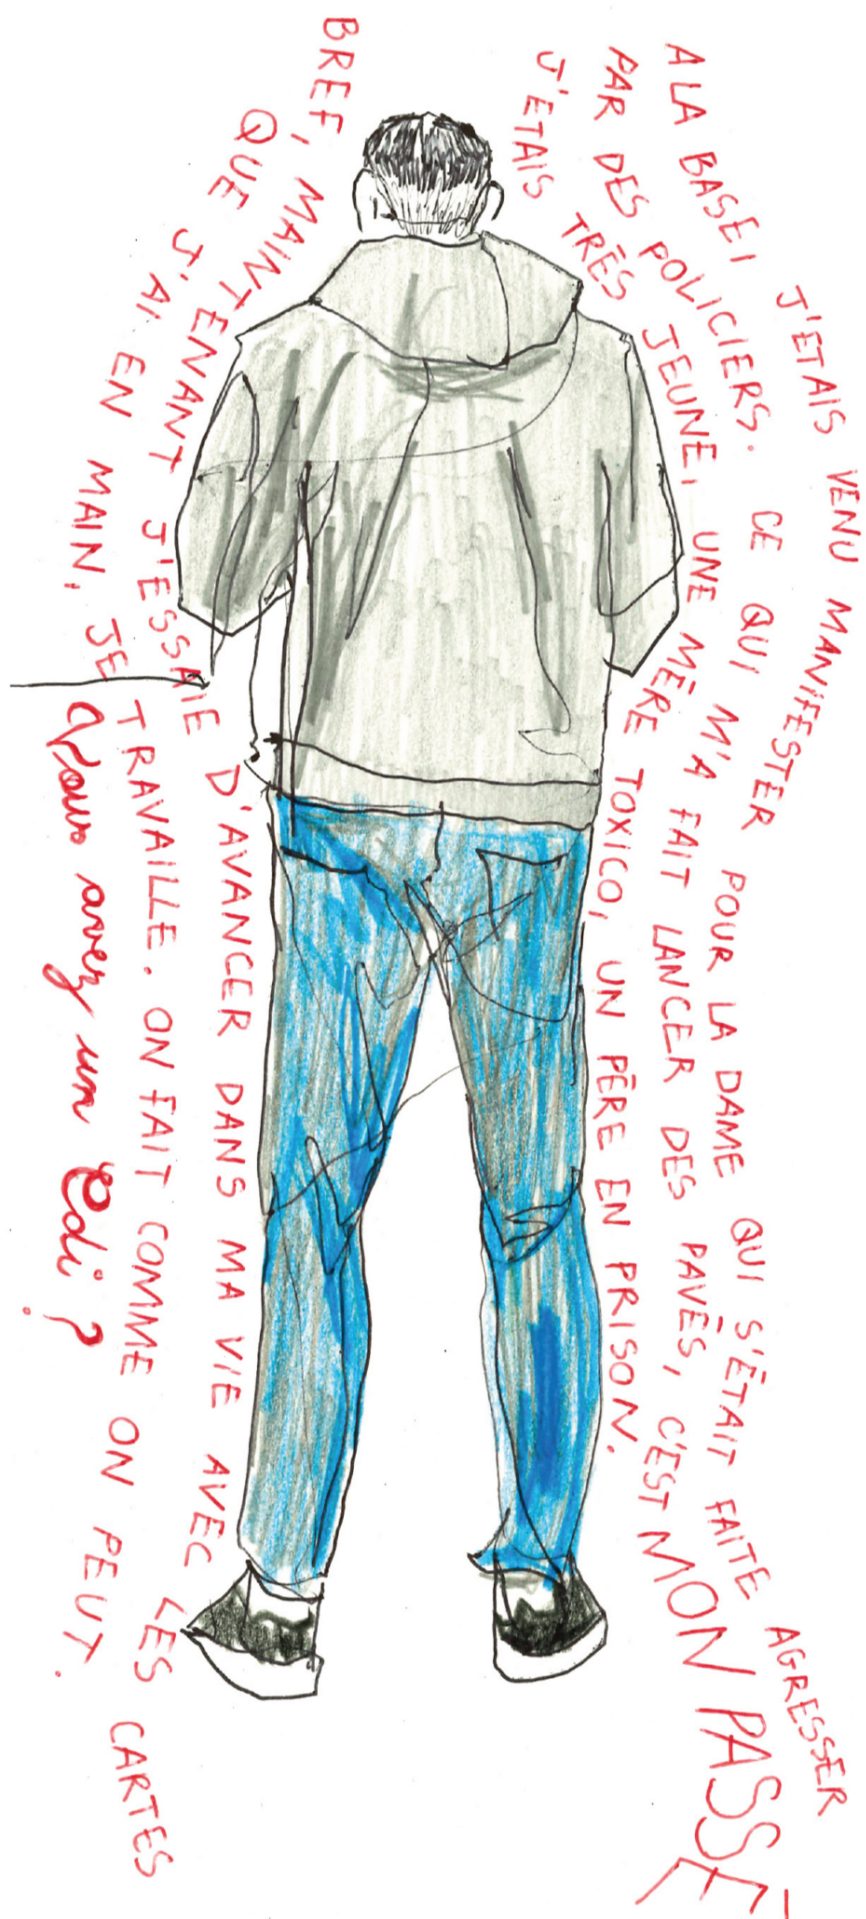 A LA BASE, J'ÉTAIS VENU MANIFESTER POUR LA DAME QUI S'ÉTAIT FAITE AGRESSER
PAR DES POLICIERS. CE QUI M'A FAIT LANCER DES PAVÉS, C'EST MON PASSÉ
J'ÉTAIS TRÈS JEUNE, UNE MÈRE TOXICO, UN PÈRE EN PRISON.
BREF, MAINTENANT J'ESSAIE D'AVANCER DANS MA VIE AVEC LES CARTES
QUE J'AI EN MAIN, JE TRAVAILLE. ON FAIT COMME ON PEUT.
Vous avez un Cdi ?